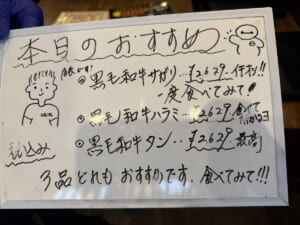 本日のおすすめ
◎黒毛和牛サガリ‥¥2629
一度食べてみて!
◎黒毛和牛ハラミ‥¥2629 食べて
◎黒毛和牛タン‥¥2629 最高!
税込み
3品どれもおすすめです。食べてみて!!!